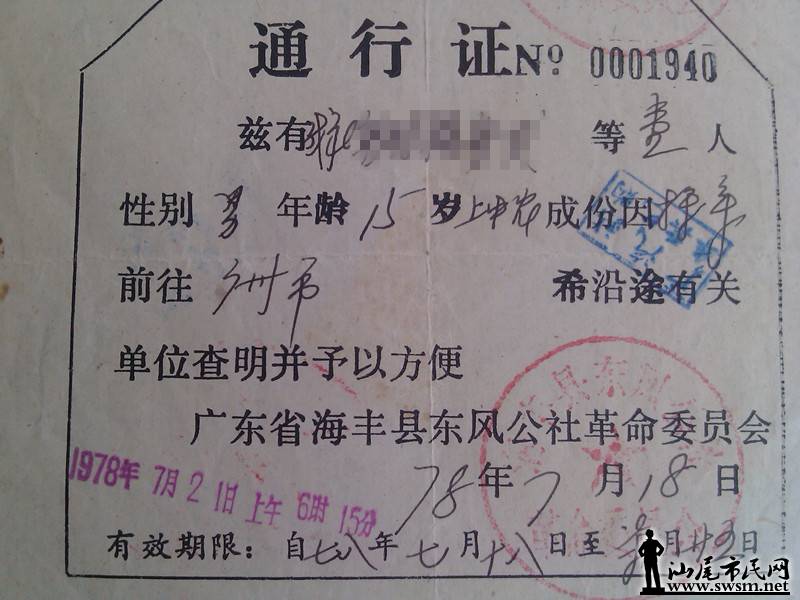 通行证 No 0001940
兹有 等壹人
性别 男 年龄 15 岁 上中农 成份因探亲
前往 广州市 希沿途有关
单位查明并予以方便
广东省海丰县东风公社革命委员会
78年7月18日
1978年 7月21日上午 6时 15分
有效期限：自七八年七月十八日至 月廿五日
汕尾市民网
www.swsm.net